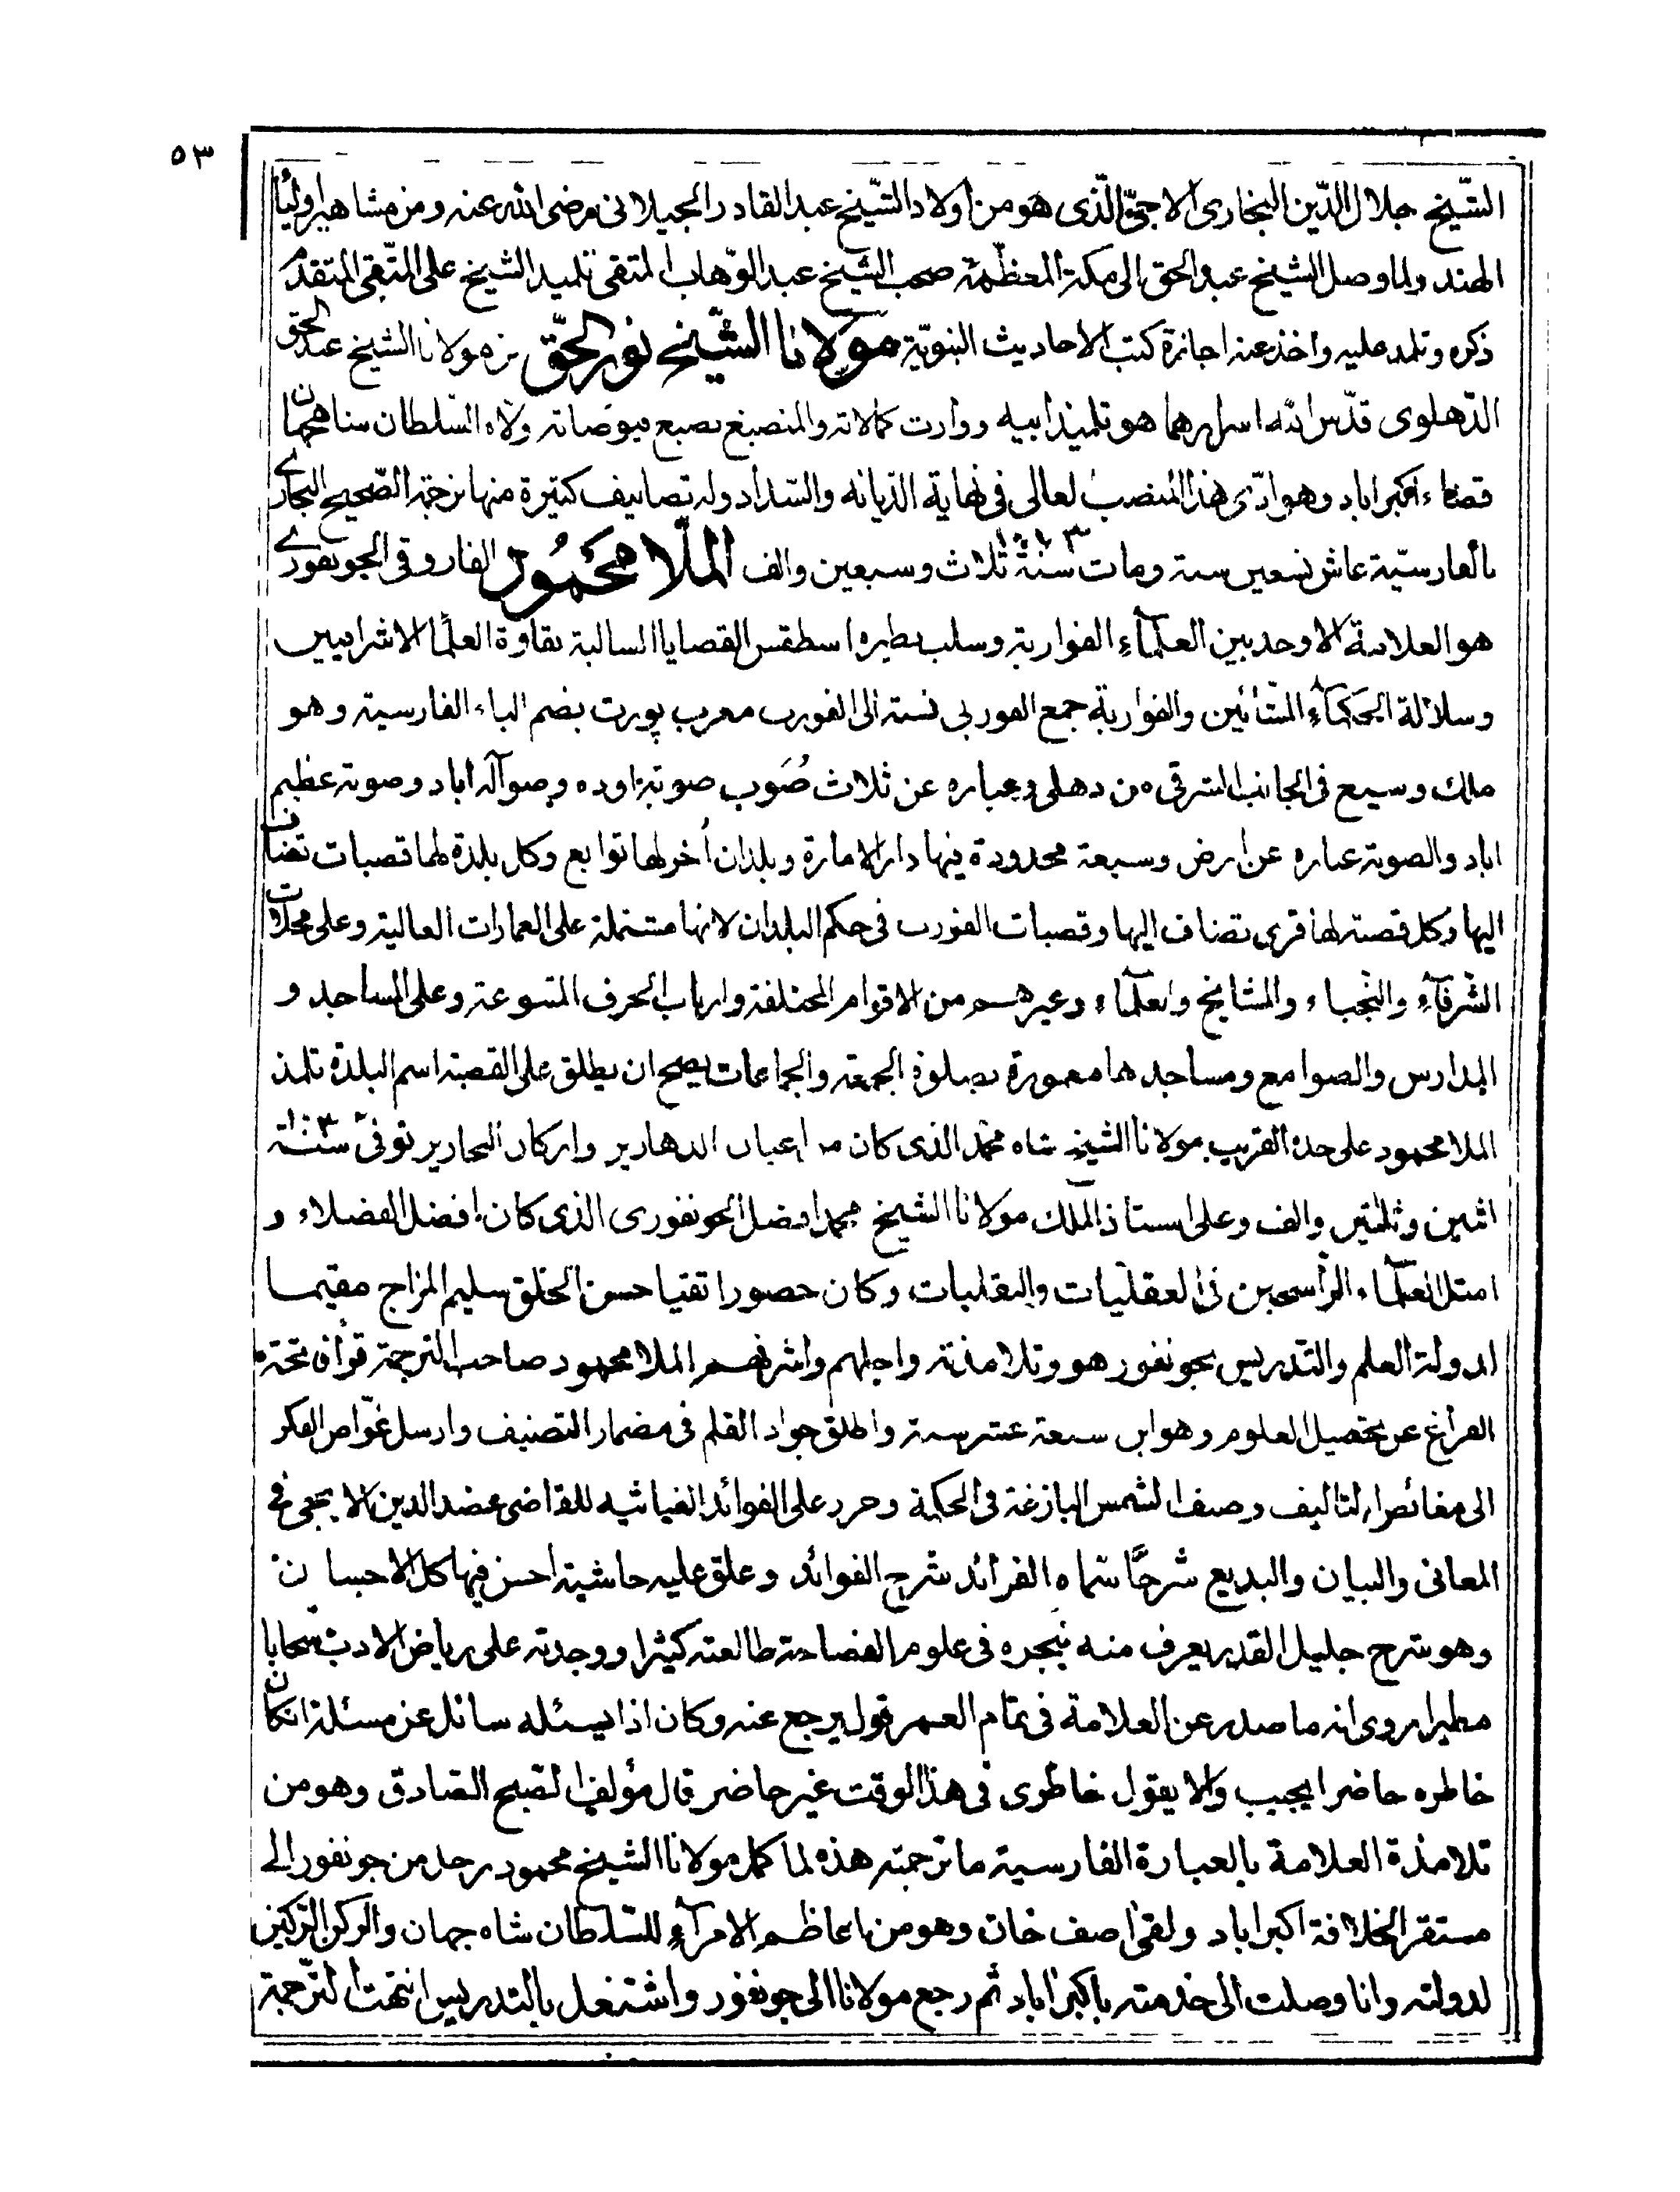 ٥٣
الشّيخ جلال الدّين البخارى الاجىّ الّذى هو من أولاد الشّيخ عبد القادر الجيلانى رضى الله عنه ومن مشاهير اوليا
الهند ولما وصل الشيخ عبد الحق الى مكة المعظّمة صحب الشيخ عبد الوّهاب المتقى تلميد الشيخ على المتّقى المتقدم
ذكره وتلمد عليه واخذ عنه اجازة كتب الاحاديث النبويّة مولانا الشّيخ نور الحقّ بن مولانا الشيخ عبد الحق
الدّهلوى قدّس الله اسرارهما هو تلميذ ابيه ووارث كمالاته والمنصبغ بصبغ فيوضاته ولّاه السّلطان شاهجهان
قضاء اكبراباد وهو ادّى هذا المنصب العالى فى نهاية الديانه والسّداد وله تصانيف كثيرة منها ترجمة الصّحيح البخارى
بالفارسيّة عاش تسعين سنة ومات سنة ١٠٧٣ ثلاث وسبعين والف الملّا محمُود الفاروقى الجونفورى
هو العلامة الاوحد بين العلمآء الفواربة وسلب نظيره اسطقس القضايا السالبة نقاوة العلما الاشراقيين
وسلالة الحكمآء المشّائين والفواربة جمع الفوربى نسبته الى الفورب معرب پورب بضم الباء الفارسية وهو
ملك وسيع فى الجانب الشرقى من دهلى وعباره عن ثلاث صُوَب صوبة اوده وصوبة اله اباد وصوبة عظيم
اباد والصوبة عباره عن ارض وسيعة محدودة فيها دار الامارة وبلدان أخر لها توابع وكل بلدة لها قصبات تضاف
اليها وكل قصبة لها قرى تضاف اليها وقصبات الفورب فى حكم البلدان لانها مشتملة على العمارات العالية وعلى محلات
الشرفآء والنجباء والمشايخ والعلمآء وغيرهم من الاقوام المختلفة وارباب الحرف المتنوعة وعلى المساجد و
المدارس والصوامع ومساجدهما معمورة بصلوة الجمعة والجماعات يصح ان يطلق على القصبة اسم البلدة تلمذ
الملا محمود على جده القريب مولانا الشيخ شاه محمد الذى كان من اعيان الدهارير واركان النحارير توفى سنة ١٠٣٢
اثنين وثلثين والف وعلى استاذ الملك مولانا الشيخ محمد افضل الجونفورى الذى كان افضل الفضلاء و
امثل العلمآء الرأسخين فى العقليات والنقليات وكان حصورا تقيا حسن الخلق سليم المزاج مقيما
لدولة العلم والتدريس بجونفور هو وتلامذته واجلهم واشرفهم الملا محمود صاحب الترجمة قرأ فاتحة
الفراغ عن تحصيل العلوم وهو ابن سبعة عشر سنة واطلق جواد القلم فى مضمار التصنيف وارسل غوّاص الفكر
الى مغائص التاليف وصنف الشمس البازغة فى الحكمة وحرر على الفوائد الغياثيه للقاضى عضد الدين الايجى فى
المعانى والبيان والبديع شرحًا سّماه الفرائد شرح الفوائد وعلق عليه حاشية احسن فيها كل الاحسان
وهو شرح جليل القدر يعرف منه تبحره فى علوم الفصاحة طالعته كثيرا ووجدته على رياض الادب سحابا
مطيرا روى انه ما صدر عن العلامة فى تمام العمر قول يرجع عنه وكان اذا يسئله سائل عن مسئلة ان كان
خاطره حاضرا يجيب والا يقول خاطرى فى هذا الوقت غير حاضر قال مؤلف الصبح الصادق وهو من
تلامذة العلامة بالعبارة الفارسية ما ترجمته هذه لما كمل مولانا الشيخ محمود رحل من جونفور الى
مستقر الخلافة اكبراباد ولقى اصف خان وهو من اعاظم الامرآء للسّلطان شاه جهان والركن الرّكين
لدولته وانا وصلت الى خدمته باكبراباد ثم رجع مولانا الى جونفور واشتغل بالتدريس انتهت الترجمة